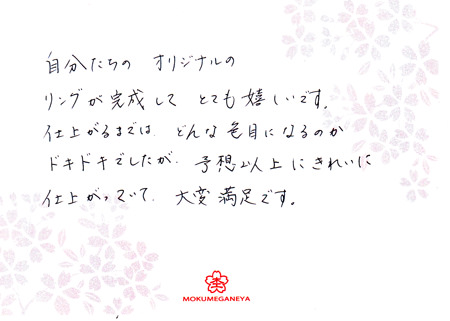 自分たちの オリジナルの
リングが完成して とても嬉しいです。
仕上がるまでは、どんな色目になるのか
ドキドキでしたが、予想以上にきれいに
仕上がっていて、大変満足です。
MOKUMEGANEYA